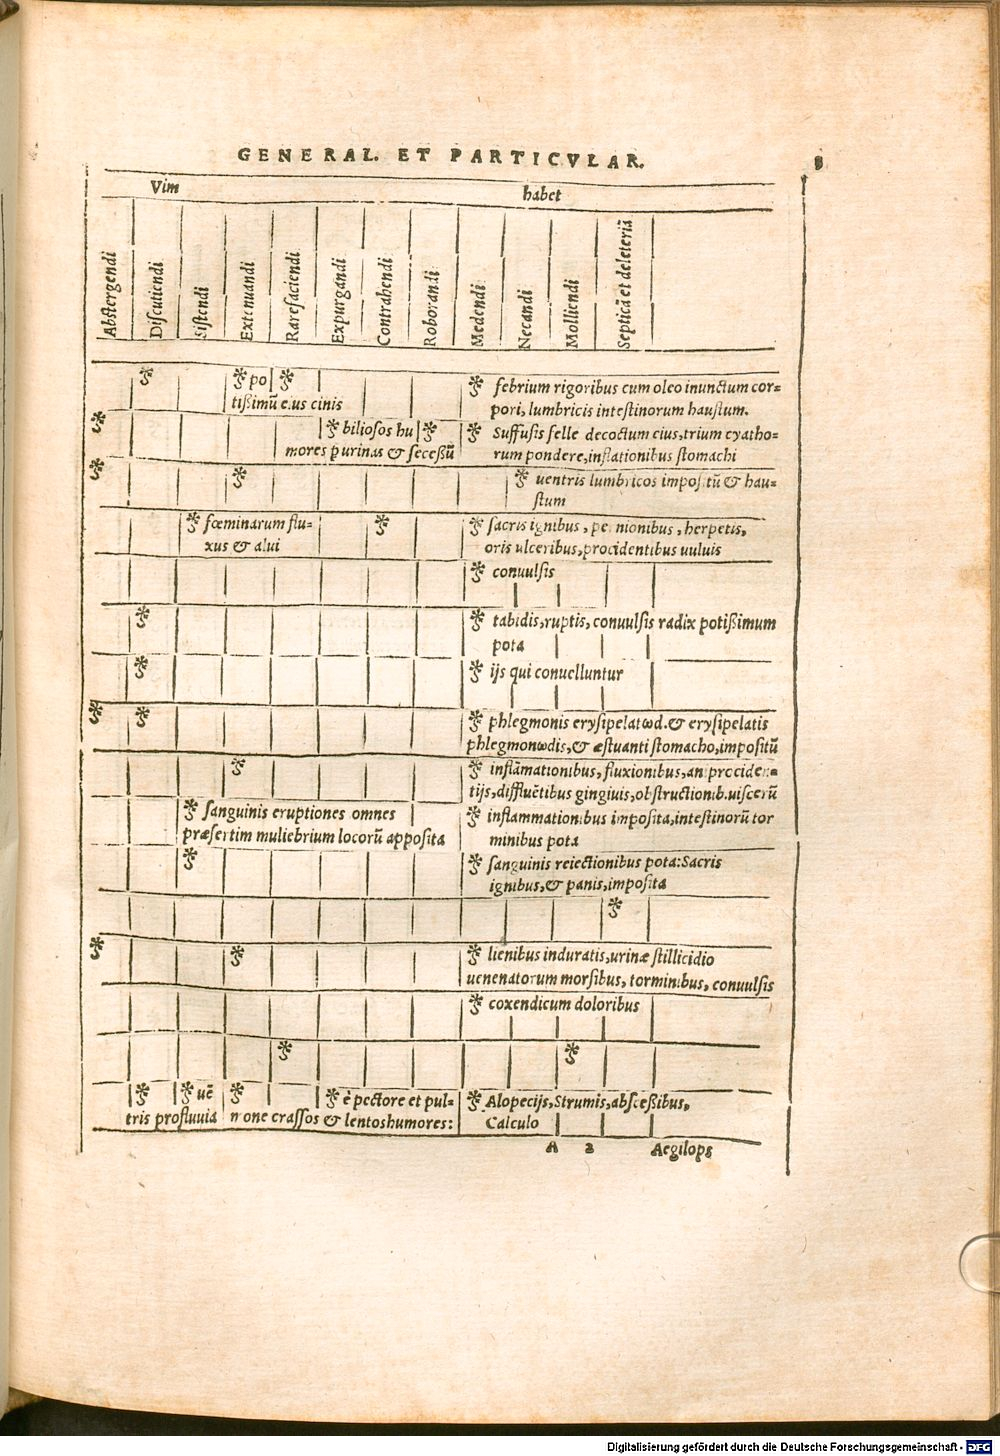 GENERAL. ET PARTICVLAR. 8
Vim habet
Abstergendi
Discutiendi
Sistendi
Extenuandi
Rarefaciendi
Expurgandi
Contrahendi
Roborandi
Medendi
Necandi
Molliendi
Septicā et deleteriā
po
tißimū eius cinis
febrium rigoribus cum oleo inunctum cor=
pori, lumbricis intestinorum haustum.
biliosos hu
mores p urinas & secessū
Suffusis felle decoctum eius, trium cyatho-
rum pondere, inflationibus stomachi
uentris lumbricos impositū & hau=
stum
fœminarum flu=
xus & alui
sacris ignibus, pernionibus, herpetis,
oris ulceribus, procidentibus uuluis
conuulsis
tabidis, ruptis, conuulsis radix potißimum
pota
ijs qui conuelluntur
phlegmonis erysipelatωd. & erysipelatis
phlegmonωdis, & æstuanti stomacho, impositū
inflāmationibus, fluxionibus, ani prociden=
tijs, diffluētibus gingiuis, obstructionib. uiscerū
sanguinis eruptiones omnes
præsertim muliebrium locorū apposita
inflammationibus imposita, intestinorū tor
minibus pota
sanguinis reiectionibus pota: Sacris
ignibus, & panis, imposita
lienibus induratis, urinæ stillicidio
uenenatorum morsibus, torminibus, conuulsis
coxendicum doloribus
uē
tris profluuia
è pectore et pul=
mone crassos & lentos humores:
Alopecijs, Strumis, abscessibus,
Calculo
A 2 Aegilops
Digitalisierung gefördert durch die Deutsche Forschungsgemeinschaft - DFG